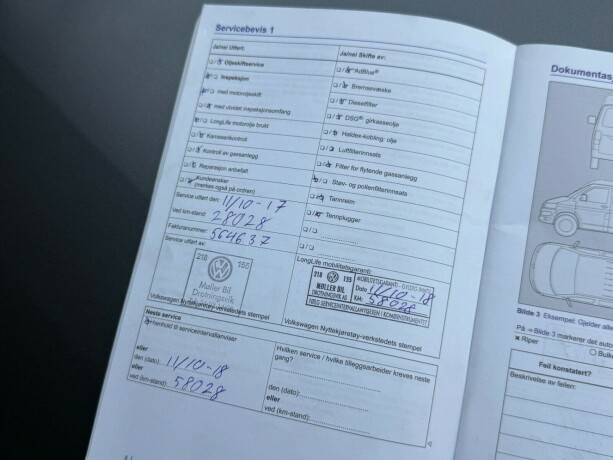 Servicebevis 1
Ja/nei Utført:
Ja/nei Skifte av:
Oljeskiftservice
Inspeksjon
med motoroljeskift
med utvidet inspeksjonsomfang
LongLife motorolje brukt
Karosserikontroll
Kontroll av gassanlegg
Reparasjon anbefalt
Kundeønsker
(merkes også på ordren)
AdBlue®
Bremsevæske
Dieselfilter
DSG® girkasseolje
Haldex-kobling: olje
Luftfilterinnsats
Filter for flytende gassanlegg
Støv- og pollenfilterinnsats
Tannreim
Tennplugger
Service utført den: 11/10-17
Ved km-stand: 28028
Fakturanummer: 564637
Service utført av:
218 195
Møller Bil
Drotningsvik
Volkswagen Nyttekjøretøy-verkstedets stempel
LongLife mobilitetsgaranti:
218 195
MØLLER BIL
DROTNINGSVIK AS
Dato 11/10-18
KM: 58028
Volkswagen Nyttekjøretøy-verkstedets stempel
Neste service
I henhold til serviceintervallanviser
eller
den (dato): 11/10-18
eller
ved (km-stand): 58028
Hvilken service / hvilke tilleggsarbeider kreves neste
gang?
den (dato):
eller
ved (km-stand):
Dokumentasj
Bilde 3 Eksempel: Gjelder alle
På ⇒ Bilde 3 markerer det auto
Riper
Bulk
Feil konstatert?
Beskrivelse av feilen: